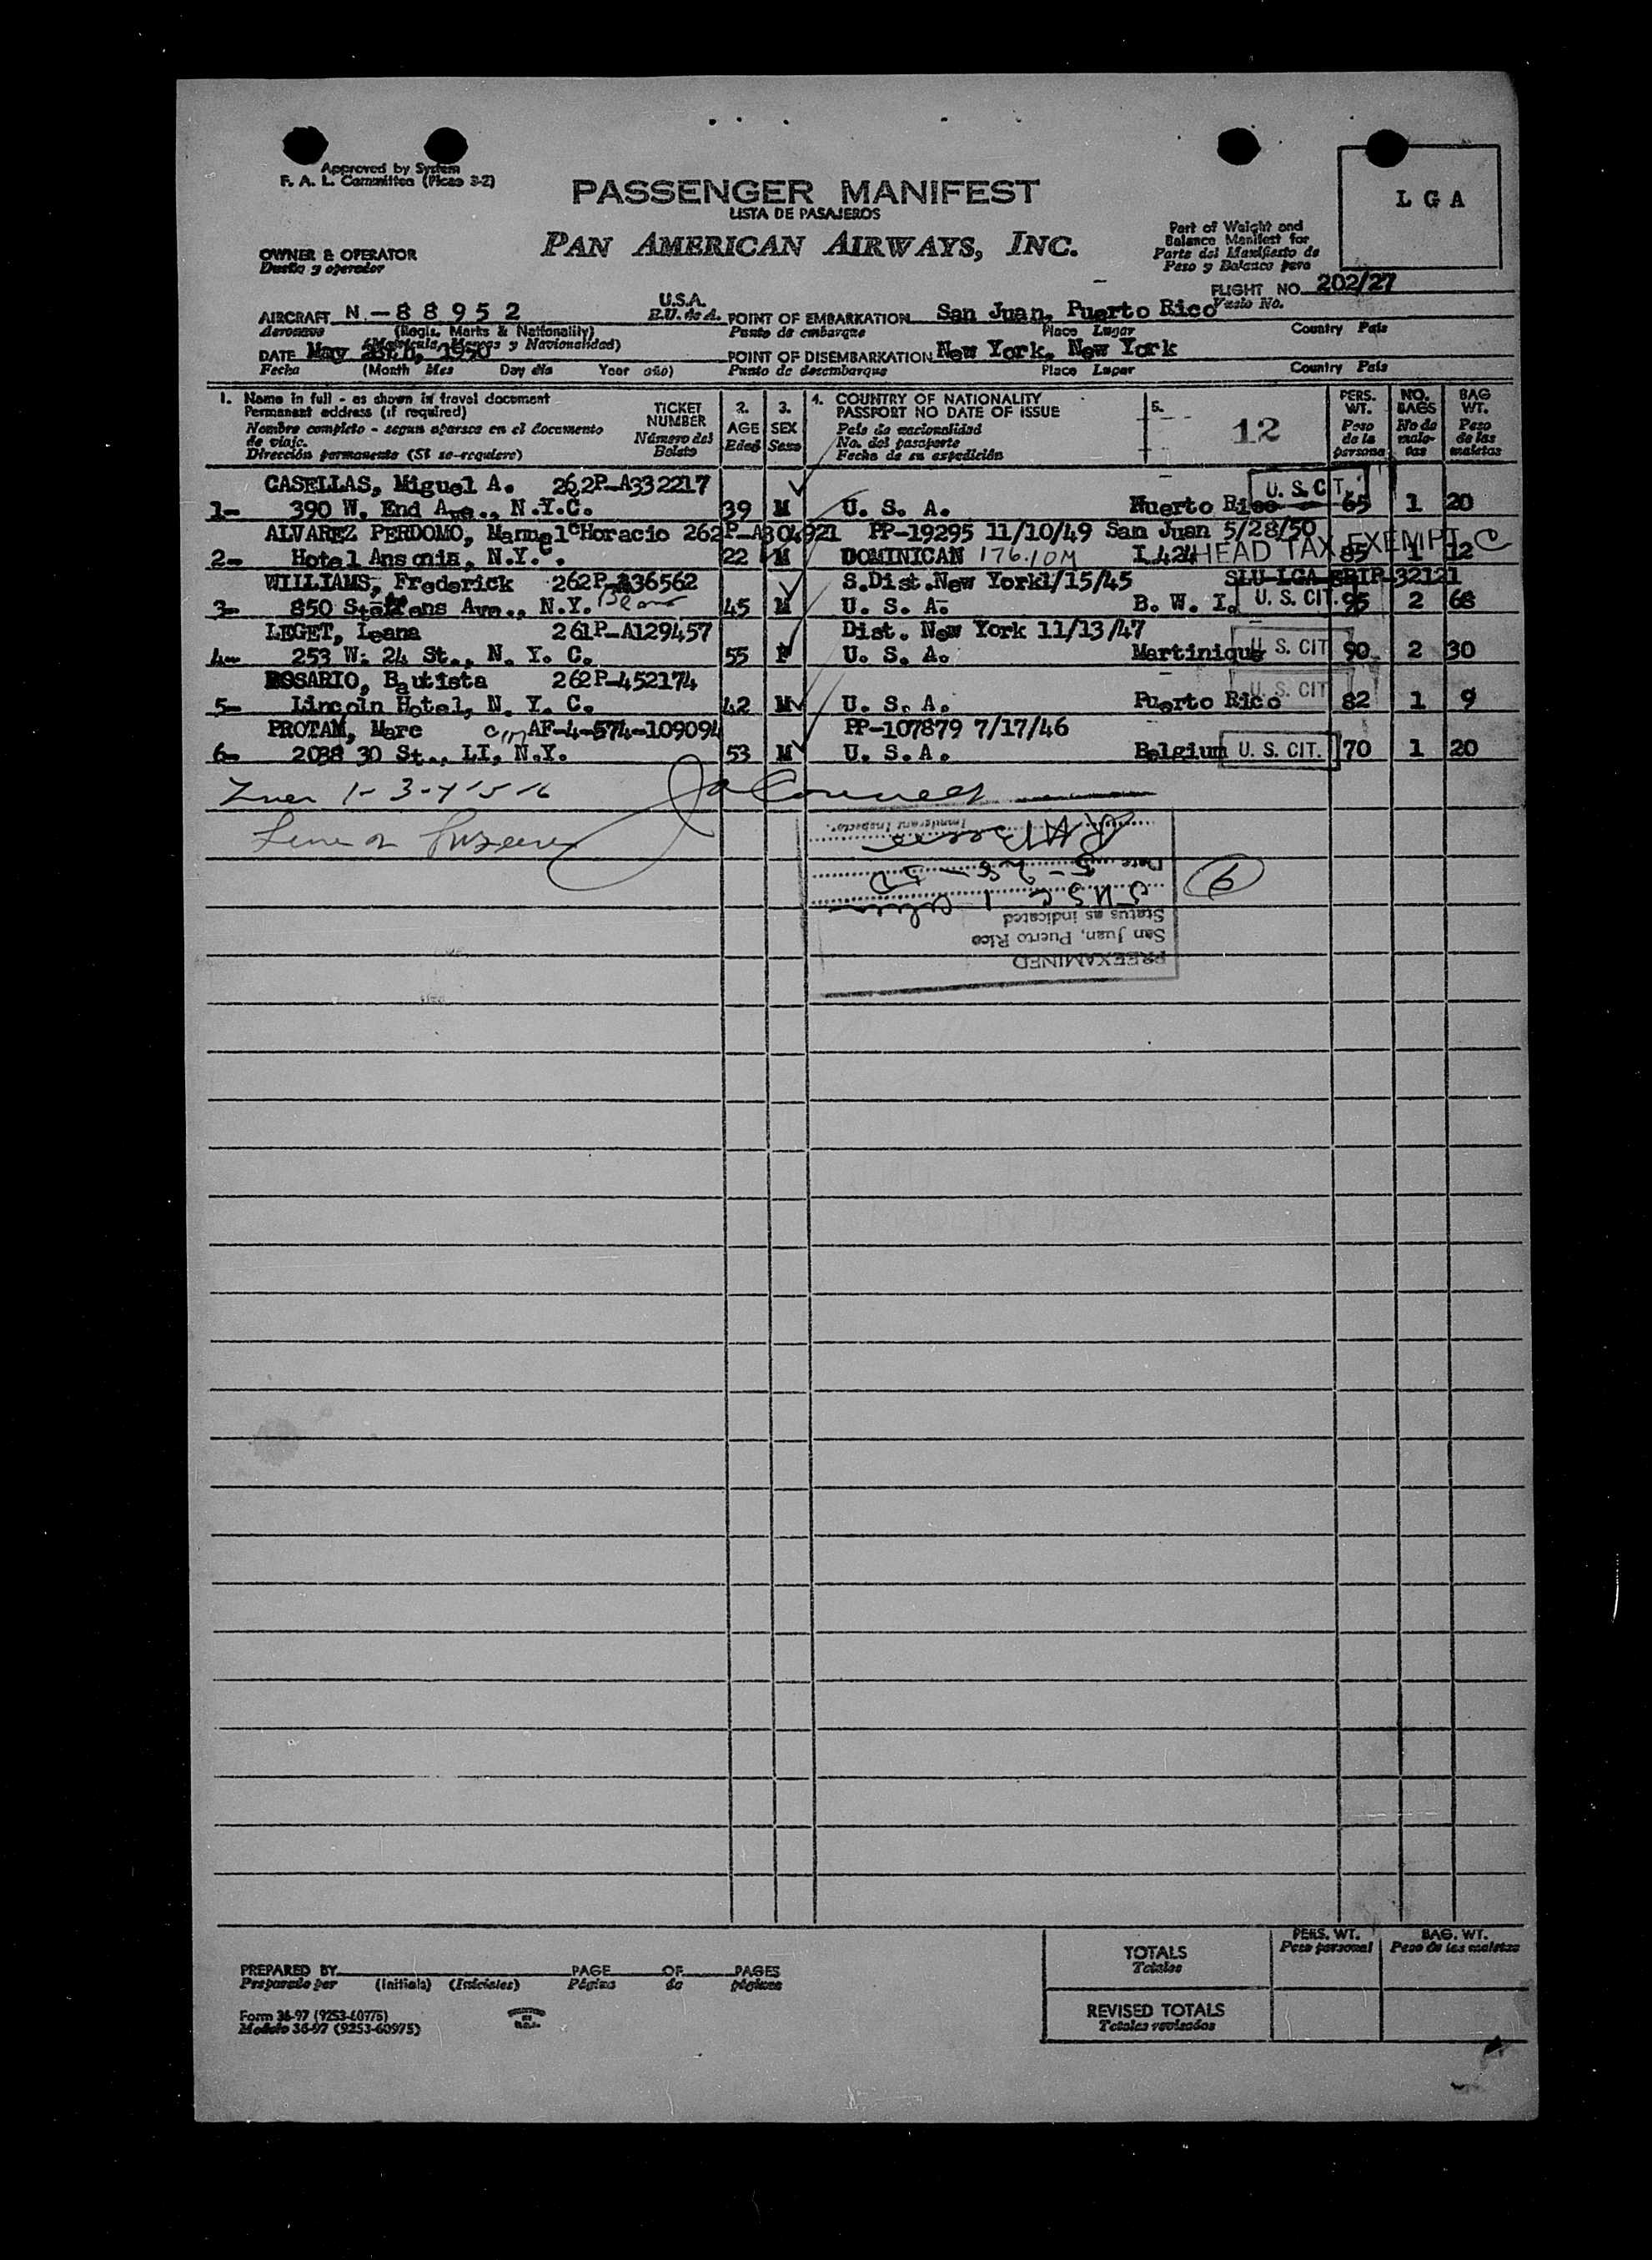 Approved by System
F. A. L. Committee (Picao 3-2)
PASSENGER MANIFEST
LISTA DE PASAJEROS
PAN AMERICAN AIRWAYS, INC.
L G A
Part of Weight and
Balance Manifest for
Parte del Manifiesto de
Peso y Balance para
OWNER & OPERATOR
Dueño y operador
FLIGHT NO. 202/27
Vuelo No.
AIRCRAFT N-88952 U.S.A.
E.U. de A.
Aeronave (Regis. Marks & Nationality)
(Matricula, Marcas y Nacionalidad)
POINT OF EMBARKATION San Juan, Puerto Rico
Punto de embarque Place Lugar Country País
DATE May 28th, 1950
Fecha (Month Mes Day día Year año)
POINT OF DISEMBARKATION New York, New York
Punto de desembarque Place Lugar Country País
1. Name in full - as shown in travel document
Permanent address (if required)
Nombre completo - segun aparece en el documento
de viaje.
Dirección permanente (Si se requiere)
TICKET
NUMBER
Número del
Boleto
2.
AGE
Edad
3.
SEX
Sexo
4. COUNTRY OF NATIONALITY
PASSPORT NO DATE OF ISSUE
País de nacionalidad
No. del pasaporte
Fecha de su expedición
5.
12
PERS.
WT.
Peso
de la
persona
NO.
BAGS
No de
male-
tas
BAG
WT.
Peso
de las
maletas
CASELLAS, Miguel A. 262P-A332217
1- 390 W. End Ave., N.Y.C. 39 M U. S. A. Puerto Rico U. S. CIT. 65 1 20
ALVAREZ PERDOMO, Manuel Horacio 262P-A304921 PP-19295 11/10/49 San Juan 5/28/50
2- Hotel Ansonia, N.Y.C. 22 M DOMINICAN 176.10M I.424 HEAD TAX EXEMPT C 85 1 12
WILLIAMS, Frederick 262P-A36562 S.Dist.New York1/15/45 SLU-LGA-TRIP-32121
3- 850 Ave., N.Y. Bronx 45 M U. S. A. B. W. I. U. S. CIT. 95 2 68
LEGET, Leana 261P-A129457 Dist. New York 11/13/47
4- 253 W. 24 St., N. Y. C. 55 F U. S. A. Martinique U. S. CIT 90 2 30
ROSARIO, Bautista 262P-452174
5- Lincoln Hotel, N. Y. C. 42 M U. S. A. Puerto Rico U. S. CIT 82 1 9
PROTAM, Marc AF-4-574-109094 PP-107879 7/17/46
6- 2038 30 St., LI, N.Y. 53 M U. S. A. Belgium U. S. CIT. 70 1 20
1-3-4-5-6
PREEXAMINED
San Juan, Puerto Rico
Status as indicated
5 USC 1 Alien
Date 5-28-50
Immigrant Inspector.
TOTALS
Totales
PERS. WT.
Peso personal
BAG. WT.
Peso de las maletas
REVISED TOTALS
Totales revisados
PREPARED BY PAGE OF PAGES
Preparado por (Initials) (Iniciales) Página de páginas
Form 36-97 (9253-60975)
Modelo 36-97 (9253-60975)